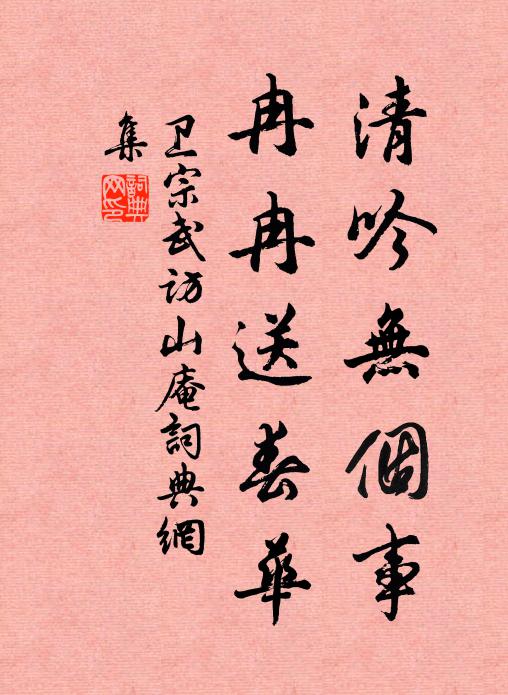 清吟無個事
冉冉送春華
卫宗武訪山庵詞典網
集
詞典
网印